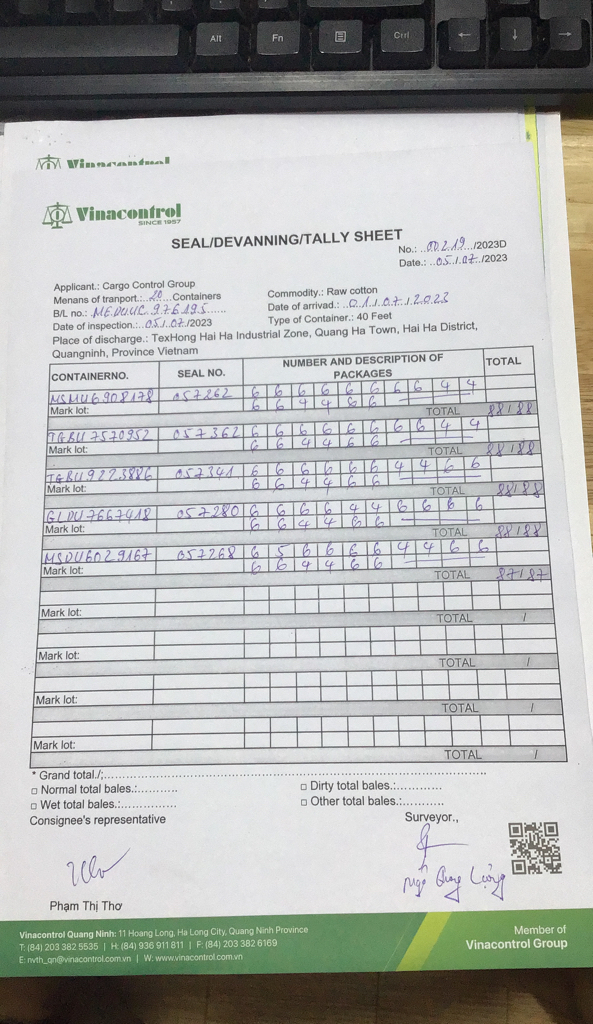 Alt Fn Ctrl ← ↓ →
Vinacontrol
Vinacontrol
SINCE 1957
SEAL/DEVANNING/TALLY SHEET
No.: 00219 /2023D
Date.: 05/07 /2023
Applicant.: Cargo Control Group
Commodity.: Raw cotton
Menans of tranport.: 20 Containers
Date of arrivad.: 01/07/2023
B/L no.: MEDUUC976195
Type of Container.: 40 Feet
Date of inspection.: 05/07/2023
Place of discharge.: TexHong Hai Ha Industrial Zone, Quang Ha Town, Hai Ha District,
Quangninh, Province Vietnam
CONTAINERNO. SEAL NO. NUMBER AND DESCRIPTION OF PACKAGES TOTAL
MSMU6908178 057262 6 6 6 6 6 6 6 6 4 4
Mark lot: 6 6 4 4 6 6
TOTAL 88/88
TGBU7570952 057362 6 6 6 6 6 6 6 6 4 4
Mark lot: 6 6 4 4 6 6
TOTAL 88/88
TGBU9223886 057341 6 6 6 6 6 6 4 4 6 6
Mark lot: 6 6 4 4 6 6
TOTAL 88/88
GLDU7667418 057280 6 6 6 6 4 4 6 6 6 6
Mark lot: 6 6 4 4 6 6
TOTAL 88/88
MSDU6029167 057268 6 5 6 6 6 6 4 4 6 6
Mark lot: 6 6 4 4 6 6
TOTAL 87/87
Mark lot:
TOTAL /
Mark lot:
TOTAL /
Mark lot:
TOTAL /
Mark lot:
TOTAL /
* Grand total./:
□ Normal total bales.:
□ Dirty total bales.:
□ Wet total bales.:
□ Other total bales.:
Consignee's representative
Surveyor.,
Phạm Thị Thơ
Ngô Quang Lưỡng
Vinacontrol Quang Ninh: 11 Hoang Long, Ha Long City, Quang Ninh Province
T: (84) 203 382 5535 | H: (84) 936 911 811 | F: (84) 203 382 6169
E: nvth_qn@vinacontrol.com.vn | W: www.vinacontrol.com.vn
Member of
Vinacontrol Group